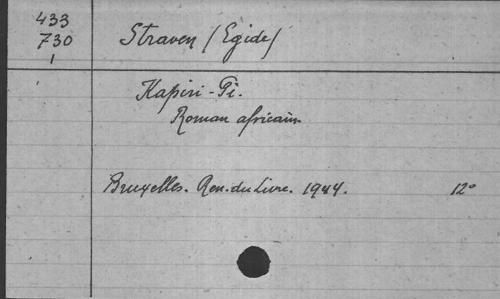 433
730
1
Straven (Egide)
Kapiri-Pi.
Roman africain.
Bruxelles. Ren. du Livre. 1944. 12°